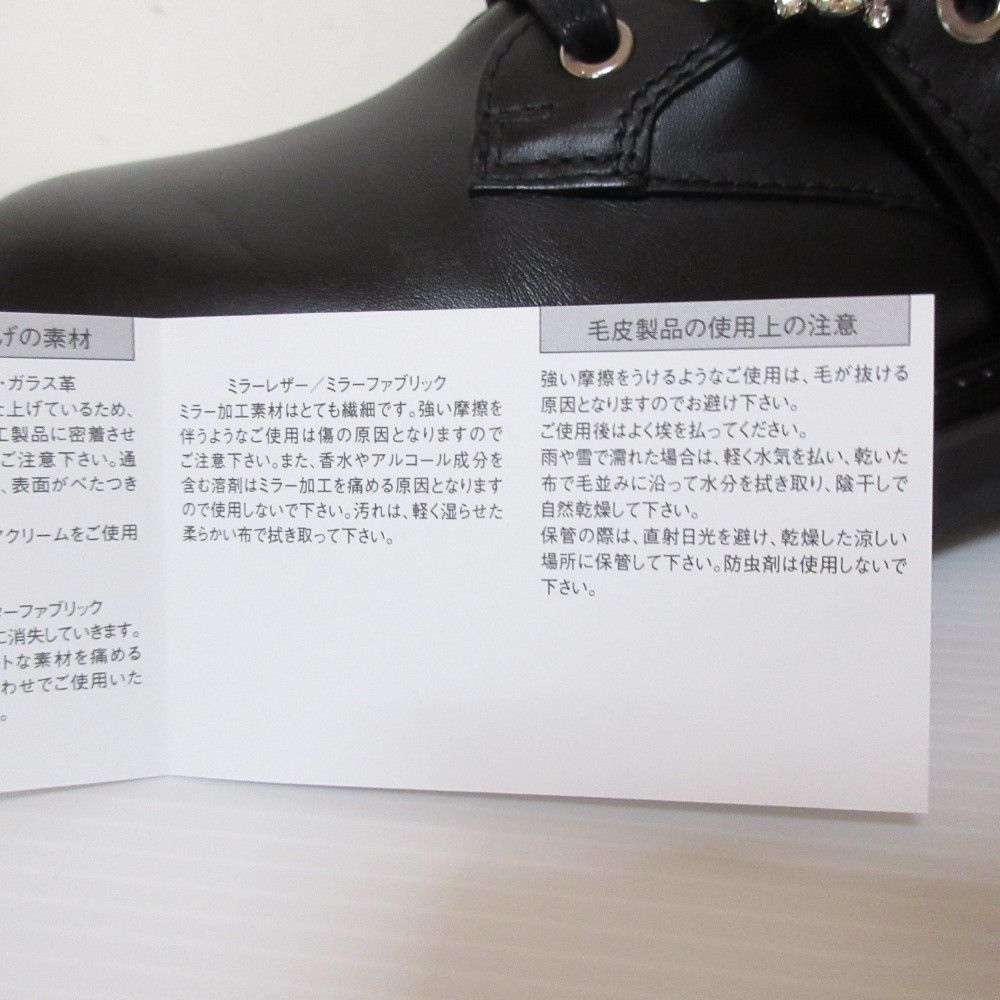 げの素材
・ガラス革
上げているため、
工製品に密着させ
ご注意下さい。通
、表面がべたつき
クリームをご使用
ターファブリック
に消失していきます。
トな素材を痛める
わせでご使用いた
。
ミラーレザー／ミラーファブリック
ミラー加工素材はとても繊細です。強い摩擦を
伴うようなご使用は傷の原因となりますので
ご注意下さい。また、香水やアルコール成分を
含む溶剤はミラー加工を痛める原因となります
ので使用しないで下さい。汚れは、軽く湿らせた
柔らかい布で拭き取って下さい。
毛皮製品の使用上の注意
強い摩擦をうけるようなご使用は、毛が抜ける
原因となりますのでお避け下さい。
ご使用後はよく埃を払ってください。
雨や雪で濡れた場合は、軽く水気を払い、乾いた
布で毛並みに沿って水分を拭き取り、陰干しで
自然乾燥して下さい。
保管の際は、直射日光を避け、乾燥した涼しい
場所に保管して下さい。防虫剤は使用しないで
下さい。